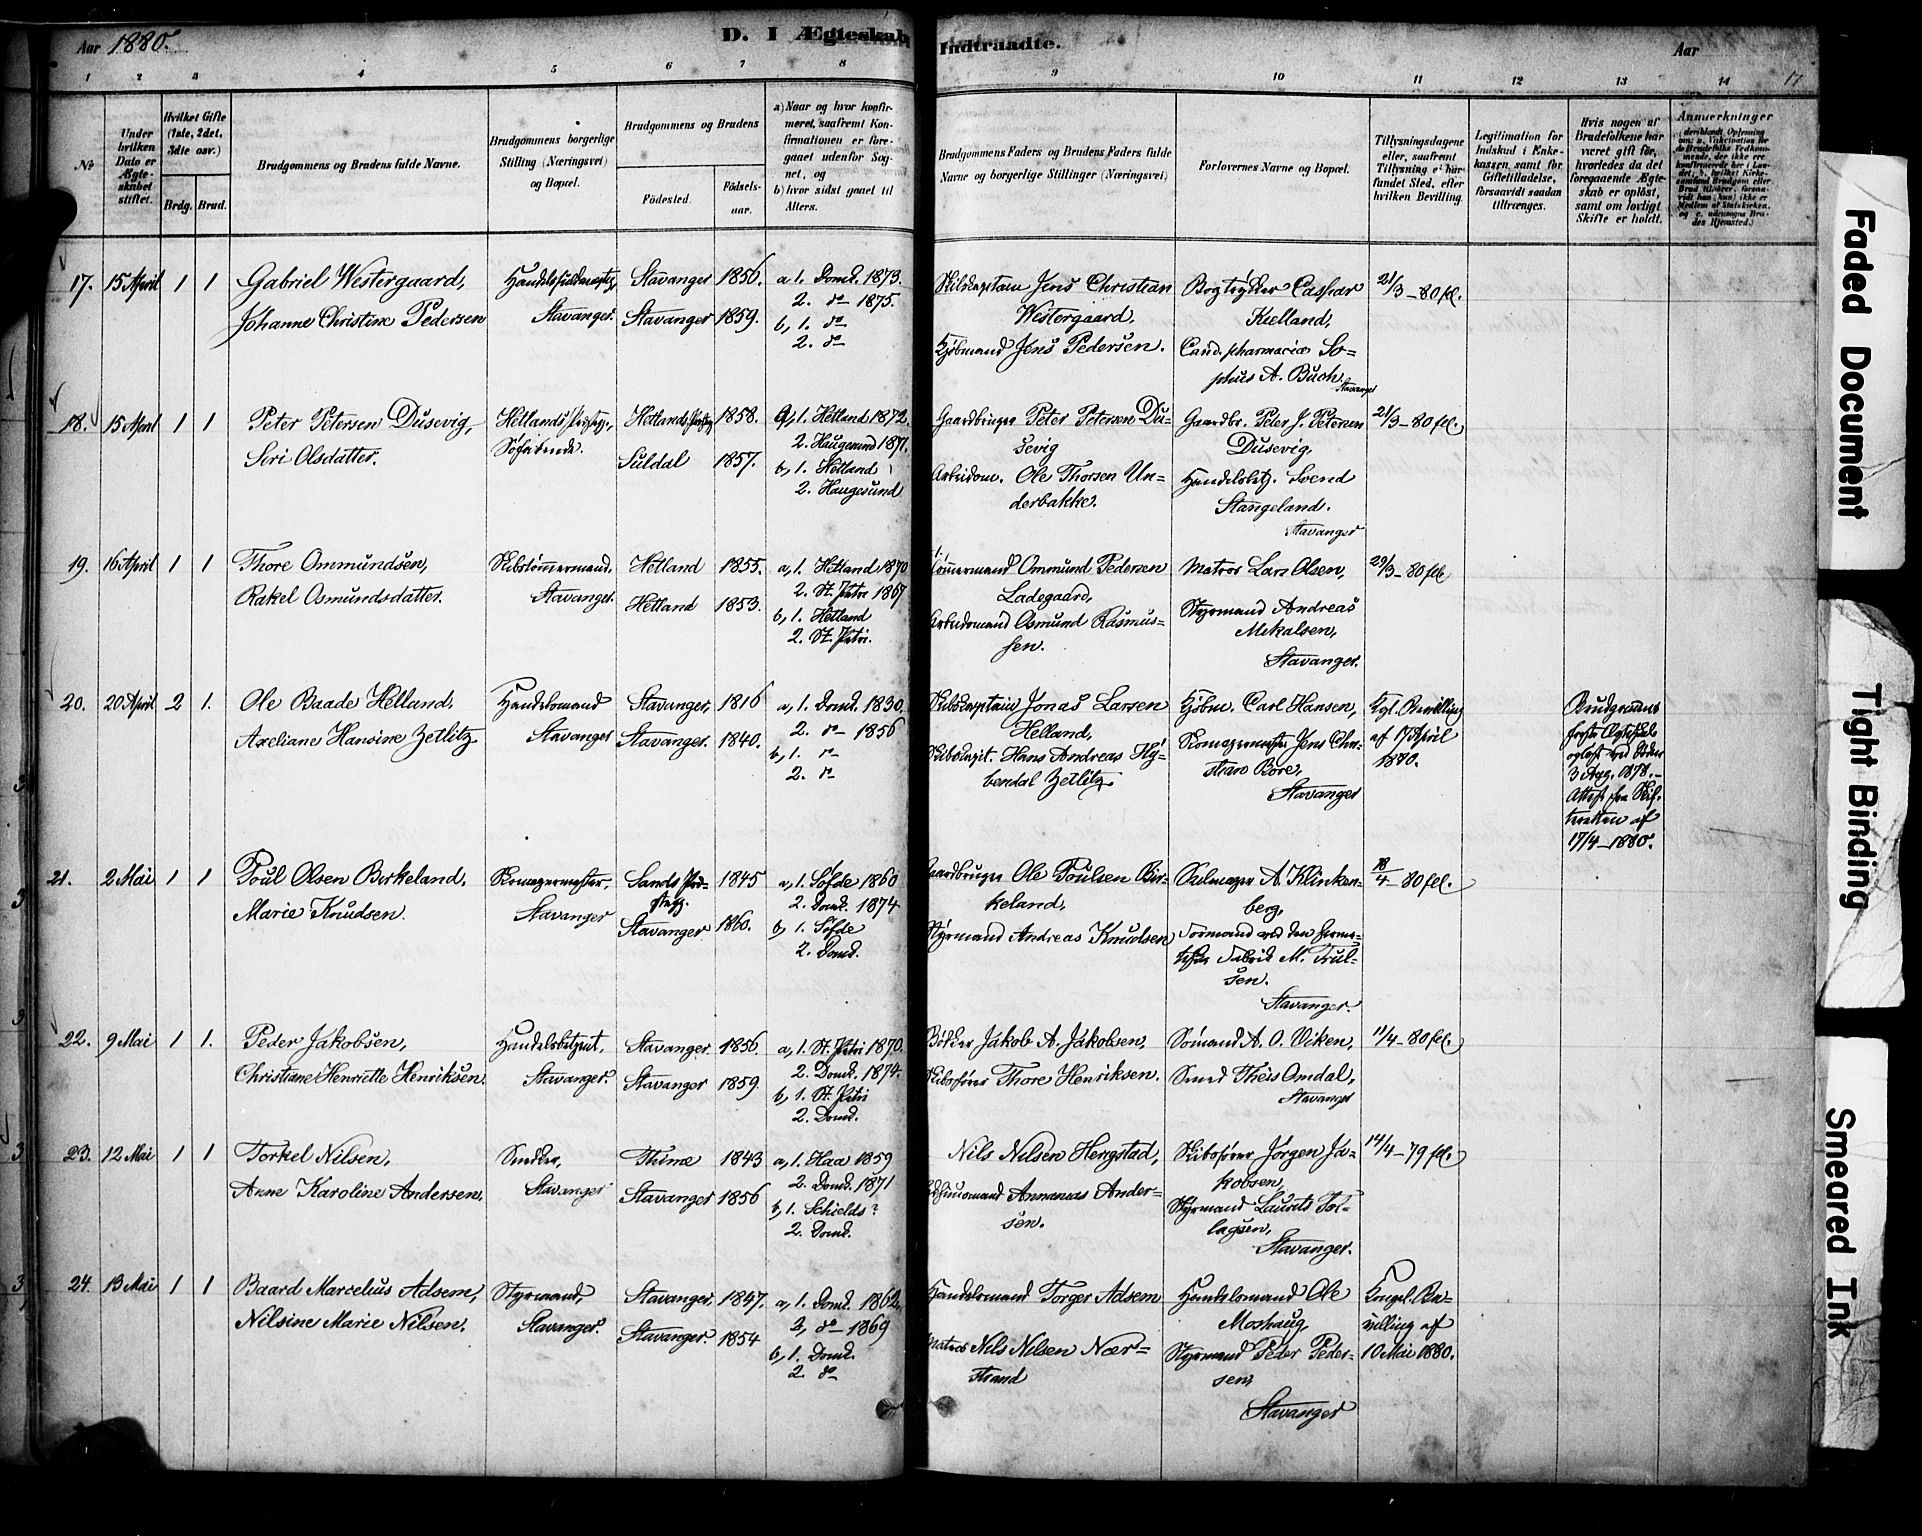 Aar 1880.
D. I Ægteskab
Indtraadte.
Aar
1 2 3 4 5 6 7 8 9 10 11 12 13 14 17
No
Under hvilken Dato er Ægteskabet stiftet.
Hvilket Gifte (1ste, 2det, 3die osv.)
Brdg. Brud.
Brudgommens og Brudens fulde Navne.
Brudgommens borgerlige Stilling (Næringsvei) og Bopæl.
Brudgommens og Brudens
Fødested.
Fødselsaar.
a) Naar og hvor konfirmeret, saafremt Konfirmationen er foregaaet udenfor Sognet, og
b) hvor sidst gaaet til Alters.
Brudgommens Faders og Brudens Faders fulde Navne og borgerlige Stillinger (Næringsvei)
Forlovernes Navne og Bopæl.
Tillysningsdagene eller, saafremt Tillysning ei har fundet Sted, efter hvilken Bevilling.
Legitimation for Indskud i Enkekassen, samt for Giftetilladelse, forsaavidt saadan tiltrænges.
Hvis nogen af Brudefolkene har været gift før, hvorledes da det foregaaende Ægteskab er opløst, samt om lovligt Skifte er holdt.
Anmærkninger
17. 15 April 1 1
Gabriel Westergaard,
Johanne Christine Pedersen
Stavanger.
Stavanger 1856.
Stavanger 1859.
a 1. Domk. 1873.
2. do 1875.
b, 1. do
2. do
Skibscaptain Jens Christian
Westergaard,
Kjøbmand Jens Pedersen.
Bogtrykker Caspar
Kielland,
Cand. pharmaciæ So-
phus A. Buch.
Stavanger
21/3 - 80 fl.
18. 15 April 1 1
Peter Petersen Dusevig,
Siri Olsdatter.
Hetlands Præstegj.,
Søfarende.
Hetlands Præstegj 1858.
Suldal 1857.
a, 1. Hetland 1872.
2. Haugesund 1871.
b, 1. Hetland
2. Haugesund
Gaardbruger Peter Petersen Du-
sevig
Arbeidsm. Ole Thorsen Un-
derbakke.
Gaardbr. Peter J. Petersen
Dusevig,
Handelsbetj. Svend
Stangeland.
Stavanger
21/3 - 80 fl.
19. 16 April 1 1
Thore Ommundsen,
Rakel Osmundsdatter.
Skibstømmermand.
Stavanger.
Hetland 1855.
Hetland 1853.
a, 1. Hetland 1870
2. St. Petri 1867
b, 1. Hetland
2. St. Petri.
Tømmermand Ommund Pedersen
Ladegaard,
Arbeidsmand Osmund Rasmus-
sen.
Matros Lars Olsen,
Styrmand Andreas
Mikalsen,
Stavanger.
29/3 - 80 fl.
20. 20 April 2 1.
Ole Baade Helland,
Axeliane Hansine Zetlitz
Handelsmand
Stavanger
Stavanger, 1816
Stavanger. 1840.
a, 1. Domk. 1830.
2. do 1856
b, 1. do
2. do
Skibscaptain Jonas Larsen
Helland,
Skibscapt. Hans Andreas Ny-
bendal Zetlitz
Kjøbm. Carl Hansen,
Skomagermester Jens Chri-
stian Bore,
Stavanger
Kgl. Bevilling
af 17 April
1880.
Brudgommens
første Ægteskab
opløst ved Døden
3 Aug. 1878. -
Attest fra Skif-
teretten af
17/4 - 1880.
21. 2 Mai 1 1
Poul Olsen Birkeland,
Marie Knudsen.
Skomagermester,
Stavanger
Sands Præ-
stegj. 1845
Stavanger 1860.
a, 1. Søfde 1860
2. Domk. 1874
b, 1. Søfde
2. Domk.
Gaardbruger Ole Poulsen Bir-
keland,
Styrmand Andreas Knudsen
Salmager A. Klinken-
berg,
Formand ved den herme-
tiske Fabrik M. Trul-
sen.
Stavanger.
18/4 - 80 fl.
22. 9 Mai 1 1.
Peder Jakobsen,
Christiane Henriette Henriksen.
Handelsbetjent,
Stavanger.
Stavanger. 1856
Stavanger 1859
a, 1. St. Petri 1870.
2. Domk. 1874.
b, 1. St. Petri
2. Domk.
Bødker Jakob A. Jakobsen,
Skibsfører Thore Henriksen.
Sømand A. O. Viken,
Smed Theis Omdal,
Stavanger
11/4 - 80 fl.
23. 12 Mai 1 1
Torkel Nilsen,
Anne Karoline Andersen,
Snedker,
Stavanger
Thime 1843
Stavanger 1856
a, 1. Haa 1859
2. Domk. 1871
b, 1. Schields?
2. Domk.
Nils Nilsen Hengstad,
Ananias Ander-
sen.
Skibsfører Jørgen Ja-
kobsen,
Styrmand Laurits Tor-
lagsen,
Stavanger.
14/4 - 79 fl.
24. 13 Mai 1 1
Baard Marcelius Adsem,
Nilsine Marie Nilsen.
Styrmand,
Stavanger.
Stavanger, 1847.
Stavanger. 1854
a, 1. Domk. 1862.
2, do 1869
b, 1. Domk.
2. do
Handelsmand Torger Adsem
Matros Nils Nilsen Nær-
strand
Handelsmand Ole
Moshaug,
Styrmand Peder Peder-
sen,
Stavanger
Kongel. Be-
villing af
10 Mai 1880.
Faded Document
Tight Binding
Smeared Ink